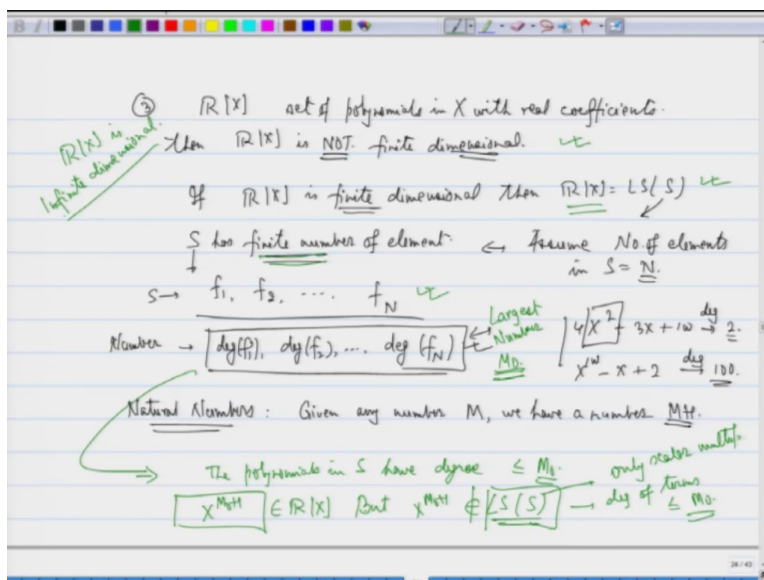 ③ R[X] set of polynomials in X with real coefficients.
R[X] is Infinite dimensional.
Then R[X] is NOT finite dimensional.
If R[X] is finite dimensional then R[X] = LS(S)
S has finite number of element. ↔ Assume No. of elements in S = N.
S → f₁, f₂, .... f_N
Number → deg(f₁), deg(f₂), ... deg(f_N)
Largest Number M₀.
4X² - 3X + 100 deg→ 2.
X¹⁰⁰ - X + 2 deg→ 100.
Natural Numbers: Given any number M, we have a number M+1.
The polynomials in S have degree ≤ M₀.
X^{M₀+1} ∈ R[X] But X^{M₀+1} ∉ LS(S)
only scalar multip.
deg of terms ≤ M₀.
26 / 43